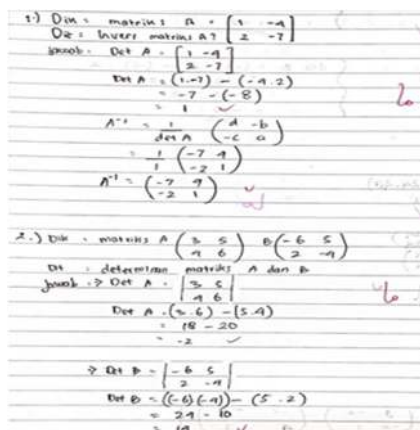 1.) Dik = matriks A = [1 -4
2 -7]
Dit = Invers matriks A?
Jawab = Det A = [1 -4
2 -7]
Det A = (1.-7) - (-4.2)
= -7 - (-8)
= 1
A⁻¹ = 1/det A (d -b
-c a)
= 1/1 (-7 4
-2 1)
A⁻¹ = (-7 4
-2 1)
2.) Dik = matriks A (3 5
4 6) B (-6 5
2 -4)
Dit = determinan matriks A dan B
Jawab => Det A = |3 5
4 6|
Det A = (3.6) - (5.4)
= 18 - 20
= -2
=> Det B = |-6 5
2 -4|
Det B = ((-6)(-4)) - (5.2)
= 24 - 10
= 14